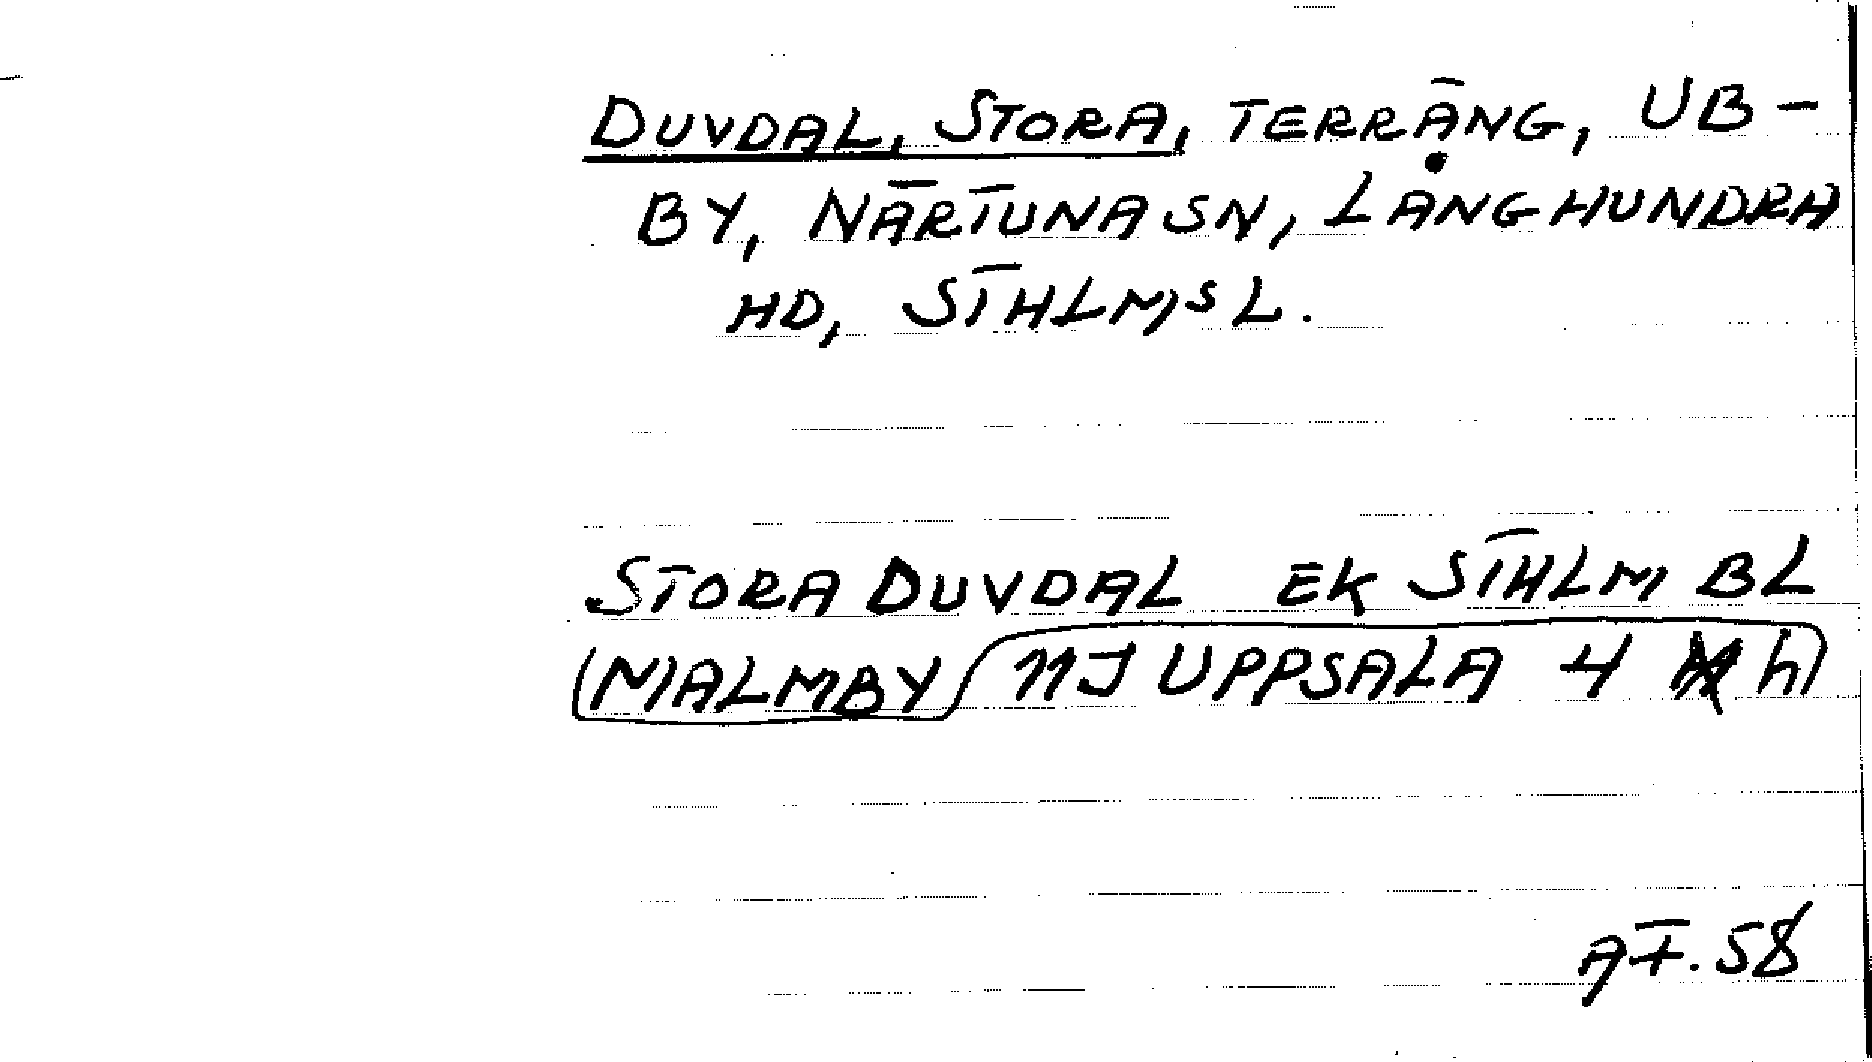 DUVDAL, STORA, TERRÄNG, UB-
BY, NÄRTUNA SN, LÅNGHUNDRA
HD, STHLMS L.
STORA DUVDAL EK STHLM BL
(MALMBY 11J UPPSALA 4 h)
AF. 58